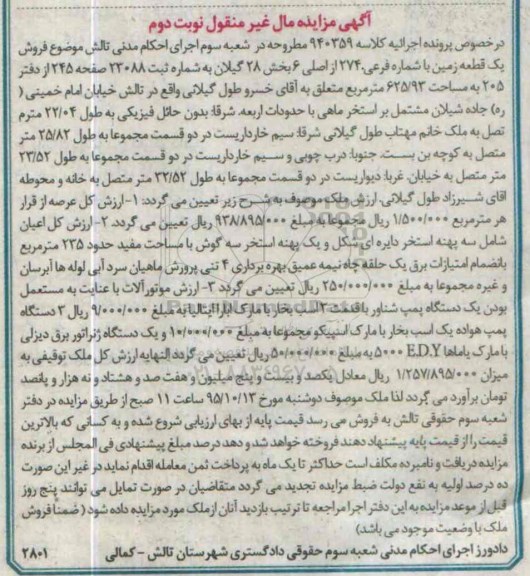 آگهی مزایده مال غیر منقول نوبت دوم
در خصوص پرونده اجرائیه کلاسه ۹۴۰۳۵۹ مطروحه در شعبه سوم اجرای احکام مدنی تالش موضوع فروش
یک قطعه زمین با شماره فرعی ۲۷۴ از اصلی ۶ بخش ۲۸ گیلان به شماره ثبت ۲۳۰۸۸ صفحه ۲۴۵ از دفتر
۲۰۵ به مساحت ۶۲۵/۹۳ مترمربع متعلق به آقای خسرو طول گیلانی واقع در تالش خیابان امام خمینی (
ره) جاده شیلان مشتمل بر استخر ماهی با حدودات اربعه. شرقا: بدون حائل فیزیکی به طول ۲۲/۰۴ مترم
تصل به ملک خانم مهتاب طول گیلانی شرقا: سیم خارداریست در دو قسمت مجموعا به طول ۲۵/۸۲ متر
متصل به کوچه بن بست. جنوبا: درب چوبی و سیم خارداریست در دو قسمت مجموعا به طول ۲۳/۵۲
متر متصل به خیابان. غربا: دیواریست در دو قسمت مجموعا به طول ۳۲/۵۲ متر متصل به خانه و محوطه
آقای شیرزاد طول گیلانی. ارزش ملک موصوف به شرح زیر تعیین می گردد: ۱- ارزش کل عرصه از قرار
هر مترمربع ۱/۵۰۰/۰۰۰ ریال مجموعا به مبلغ ۹۳۸/۸۹۵/۰۰۰ ریال تعیین می گردد. ۲- ارزش کل اعیان
شامل سه پهنه استخر دایره ای شکل و یک پهنه استخر سه گوش با مساحت مفید حدود ۲۳۵ مترمربع
بانضمام امتیازات برق یک حلقه چاه نیمه عمیق بهره برداری ۴ تنی پرورش ماهیان سرد آبی لوله ها آبرسان
و غیره مجموعا به مبلغ ۲۵۰/۰۰۰/۰۰۰ ریال تعیین می گردد ۳- ارزش موتور آلات با عنایت به مستعمل
بودن یک دستگاه پمپ شناور با قدمت ۲ اسب بخار با مارک ایتالیا به مبلغ ۹/۰۰۰/۰۰۰ ریال ۳ دستگاه
پمپ هواده یک اسب بخار با مارک اسپیکو مجموعا به مبلغ ۱۰/۰۰۰/۰۰۰ و یک دستگاه ژنراتور برق دیزلی
با مارک یاماها E.D.Y ۵۰۰۰ به مبلغ ۵۰/۰۰۰/۰۰۰ ریال تعیین می گردد النهایه ارزش کل ملک توقیفی به
میزان ۱/۲۵۷/۸۹۵/۰۰۰ ریال معادل یکصد و بیست و پنج میلیون و هفت صد و هشتاد و نه هزار و پانصد
تومان برآورد می گردد لذا ملک موصوف دوشنبه مورخ ۹۵/۱۰/۱۳ ساعت ۱۱ صبح از طریق مزایده در دفتر
شعبه سوم حقوقی تالش به فروش می رسد قیمت پایه از بهای ارزیابی شروع شده و به کسانی که بالاترین
قیمت را از قیمت پایه پیشنهاد دهند فروخته خواهد شد و دهد درصد مبلغ پیشنهادی فی المجلس از برنده
مزایده دریافت و نامبرده مکلف است حداکثر تا یک ماه به پرداخت ثمن معامله اقدام نماید در غیر این صورت
ده درصد اولیه به نفع دولت ضبط مزایده تجدید می گردد متقاضیان در صورت تمایل می توانند پنج روز
قبل از موعد مزایده به این دفتر اجرا مراجعه تا ترتیب بازدید آنان از ملک مورد مزایده داده شود ( ضمنا فروش
ملک با وضعیت موجود می باشد)
دادورز اجرای احکام مدنی شعبه سوم حقوقی دادگستری شهرستان تالش - کمالی ۲۸۰۱